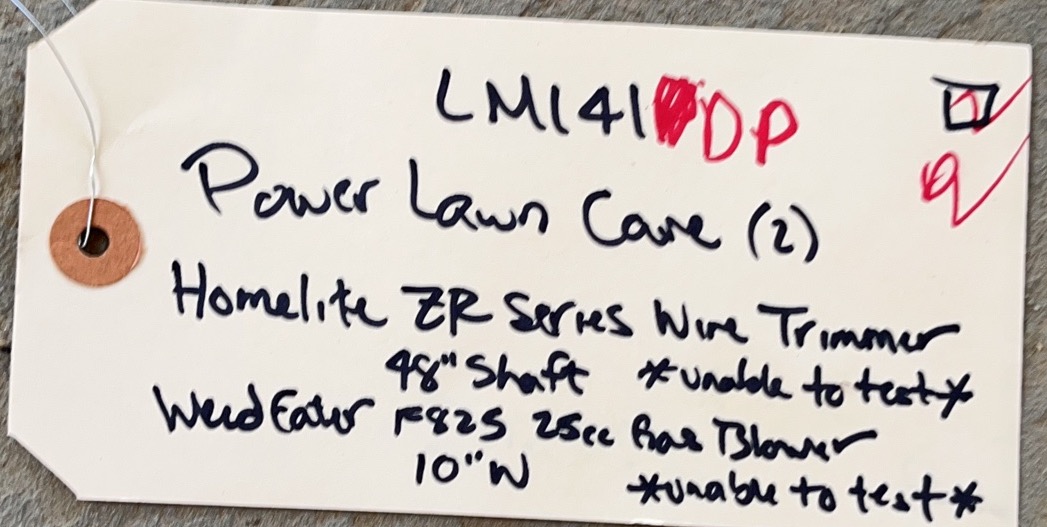 LM141 DP
Power Lawn Care (2)
Homelite ZR Series Wire Trimmer
48" Shaft *unable to test*
WeedEater F825 25cc Gas Blower
10" W *unable to test*